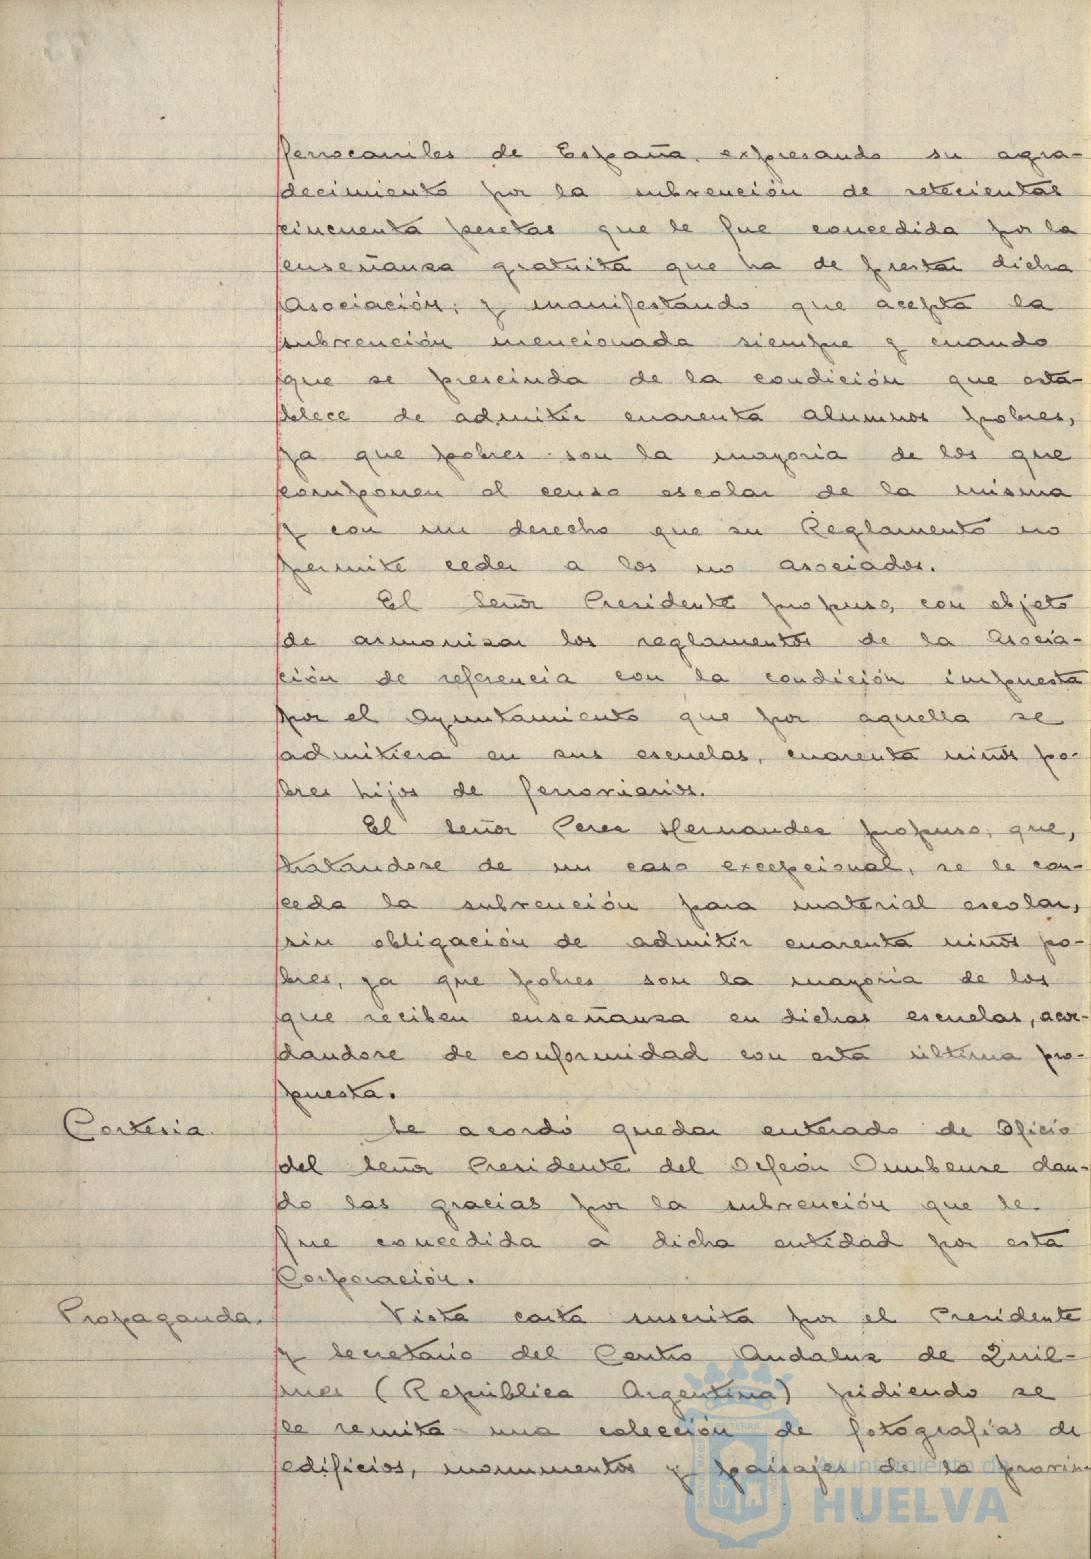 ferrocarriles de España, expresando su agra-
decimiento por la subvención de setecientas
cincuenta pesetas que le fue concedida por la
enseñanza gratuita que ha de prestar dicha
Asociación; y manifestando que acepta la
subvención mencionada siempre y cuando
que se prescinda de la condición que esta-
blece de admitir cuarenta alumnos pobres,
ya que pobres son la mayoria de los que
componen el censo escolar de la misma
y con un derecho que su Reglamento no
permite ceder a los no asociados.
El Señor Presidente propuso, con objeto
de armonizar los reglamentos de la Asocia-
ción de referencia con la condición impuesta
por el Ayuntamiento que por aquella se
admitiera en sus escuelas, cuarenta niños po-
bres hijos de ferroviarios.
El Señor Perez Hernandez propuso, que,
tratandose de un caso excepcional, se le con-
ceda la subvención para material escolar,
sin obligación de admitir cuarenta niños po-
bres, ya que pobres son la mayoria de los
que reciben enseñanza en dichas escuelas, acor-
dandose de conformidad con esta última pro-
puesta.
Cortesia. Se acordó quedar enterado de Oficio
del Señor Presidente del Orfeón Onubense dan-
do las gracias por la subvención que le
fue concedida a dicha entidad por esta
Corporación.
Propaganda. Vista carta suscrita por el Presidente
y Secretario del Centro Andaluz de Quil-
mes (República Argentina) pidiendo se
le remita una colección de fotografías de
edificios, monumentos y paisajes de la provin-
Ayuntamiento de
HUELVA